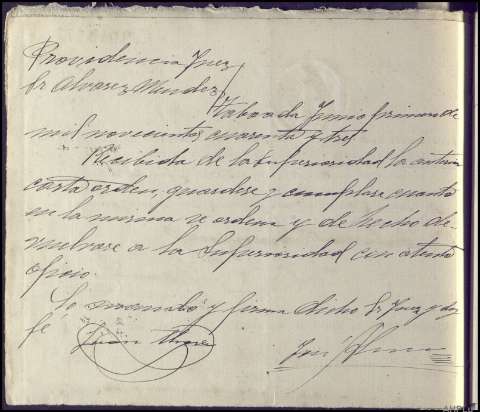 Providencia Juez
Sr Alvarez Mendez
Taboada Junio primero de
mil novecientos cuarenta y tres
Recibida de la Superioridad la anterior
carta orden, guardese y cumplase cuanto
en la misma se ordena y de hecho de-
vuelvase a la Superioridad con atento
oficio.
Lo mandó y firma dicho Sr Juez y doy
fe
Juan Alvarez
José